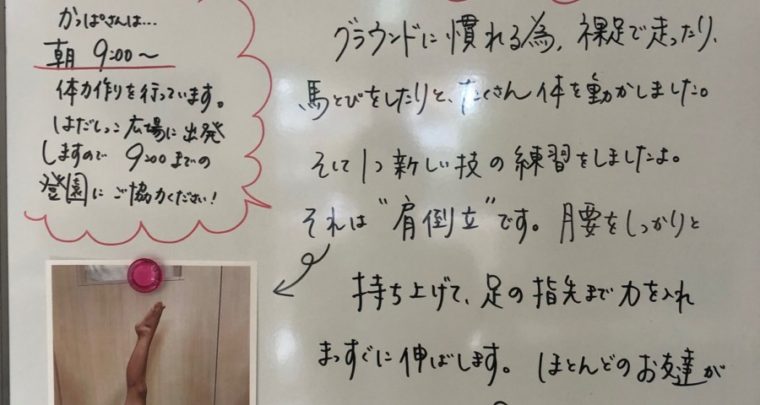 かっぱさんは…
朝 9:00〜
体力作りを行っています。
はだしっこ広場に出発
しますので 9:00までの
登園にご協力ください!
グラウンドに慣れる為、裸足で走ったり、
馬とびをしたりと、たくさん体を動かしました。
そして1つ新しい技の練習をしましたよ。
それは"肩倒立"です。腰をしっかりと
持ち上げて、足の指先まで力を入れ
まっすぐに伸ばします。ほとんどのお友達が